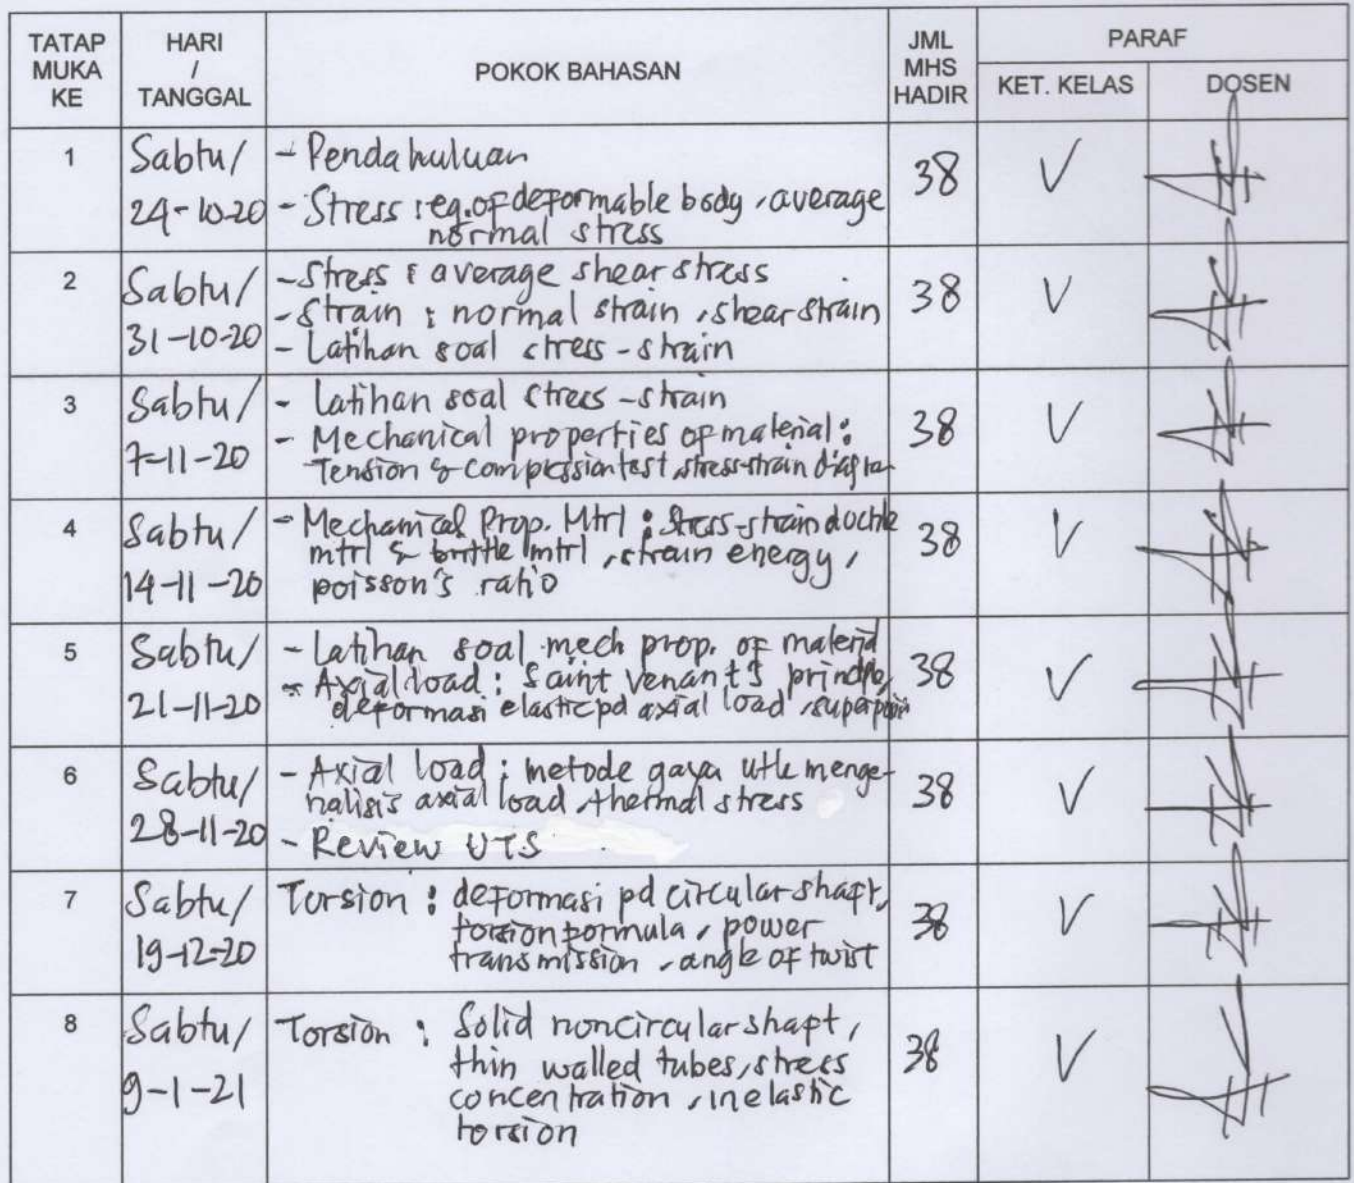 TATAP MUKA KE
HARI / TANGGAL
POKOK BAHASAN
JML MHS HADIR
PARAF
KET. KELAS
DOSEN
1
Sabtu/
24-10-20
- Pendahuluan
- Stress : eq. of deformable body, average
normal stress
38
V
2
Sabtu/
31-10-20
- Stress : average shear stress
- Strain : normal strain, shear strain
- Latihan soal stress - strain
38
V
3
Sabtu/
7-11-20
- Latihan soal stress - strain
- Mechanical properties of material :
Tension & compression test, stress-strain diagram
38
V
4
Sabtu/
14-11-20
- Mechanical Prop. Mtrl : Stress-strain ductile
mtrl & brittle mtrl, strain energy,
poisson's ratio
38
V
5
Sabtu/
21-11-20
- Latihan soal mech prop. of material
- Axial load : Saint venant's principle,
deformasi elastic pd axial load,
38
V
6
Sabtu/
28-11-20
- Axial load : metode gaya utk menge-
nalisis axial load, thermal stress
- Review UTS
38
V
7
Sabtu/
19-12-20
Torsion : deformasi pd circular shaft,
torsion formula, power
transmission, angle of twist
38
V
8
Sabtu/
9-1-21
Torsion : Solid noncircular shaft,
thin walled tubes, stress
concentration, inelastic
torsion
38
V